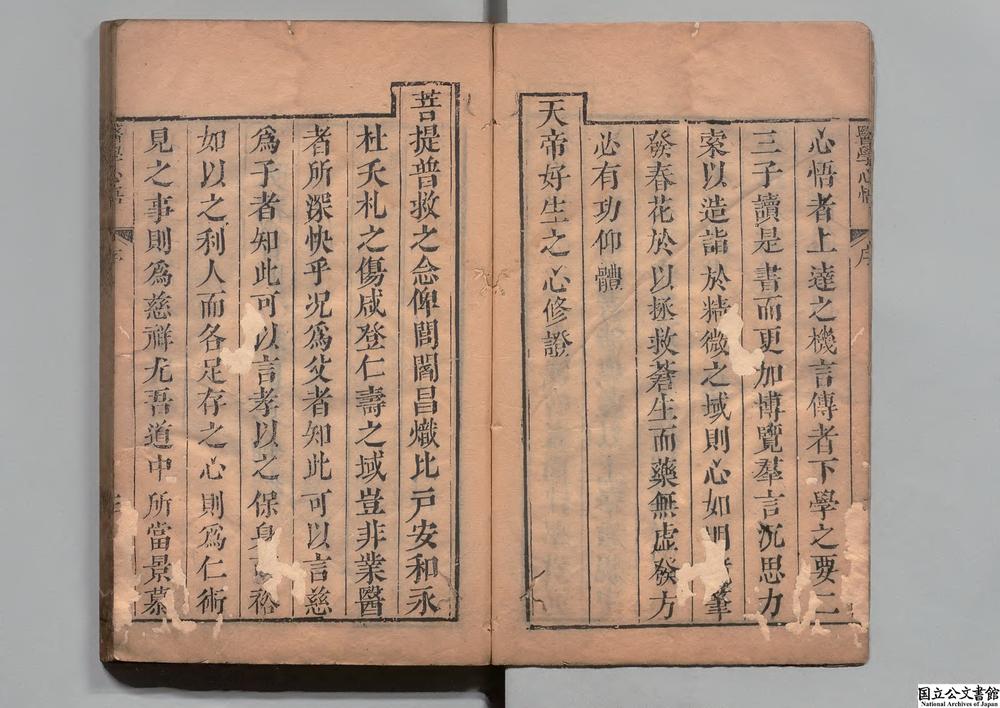 醫學心悟
序
心悟者上達之機言傳者下學之要二
三子讀是書而更加博覽羣言沉思力
索以造詣於精微之域則心如明筆
發春花於以拯救蒼生而藥無虛發方
必有功仰體
天帝好生之心修證
菩提普救之念俾閭閻昌熾比戸安和永
杜夭札之傷咸登仁壽之域豈非業醫
者所深快乎况爲父者知此可以言慈
爲子者知此可以言孝以之保身裕
如以之利人而各足存之心則爲仁術
見之事則爲慈祥尤吾道中所當景慕
醫學心悟
序
国立公文書館
National Archives of Japan